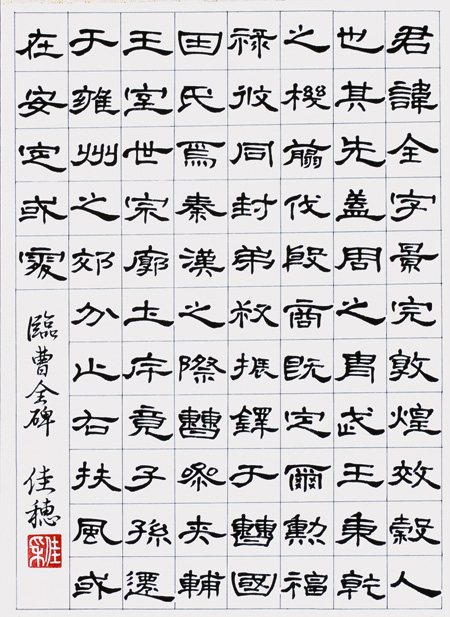 君諱全字景完敦煌效穀人
也其先蓋周之胄武王秉乾
之機翦伐殷商既定爾勳福
祿攸同封弟叔振鐸于曹國
因氏焉秦漢之際曹參夾輔
王室世宗廓土斥竟子孫遷
于雍州之郊分止右扶風或
在安定或處
臨曹全碑 佳穗